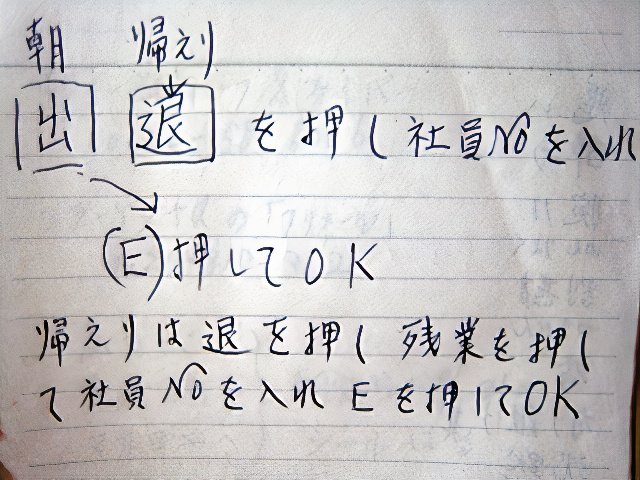 朝 帰えり
出 退 を押し社員Noを入れ
(E)押してOK
帰えりは退を押し 残業を押し
て社員Noを入れ Eを押してOK